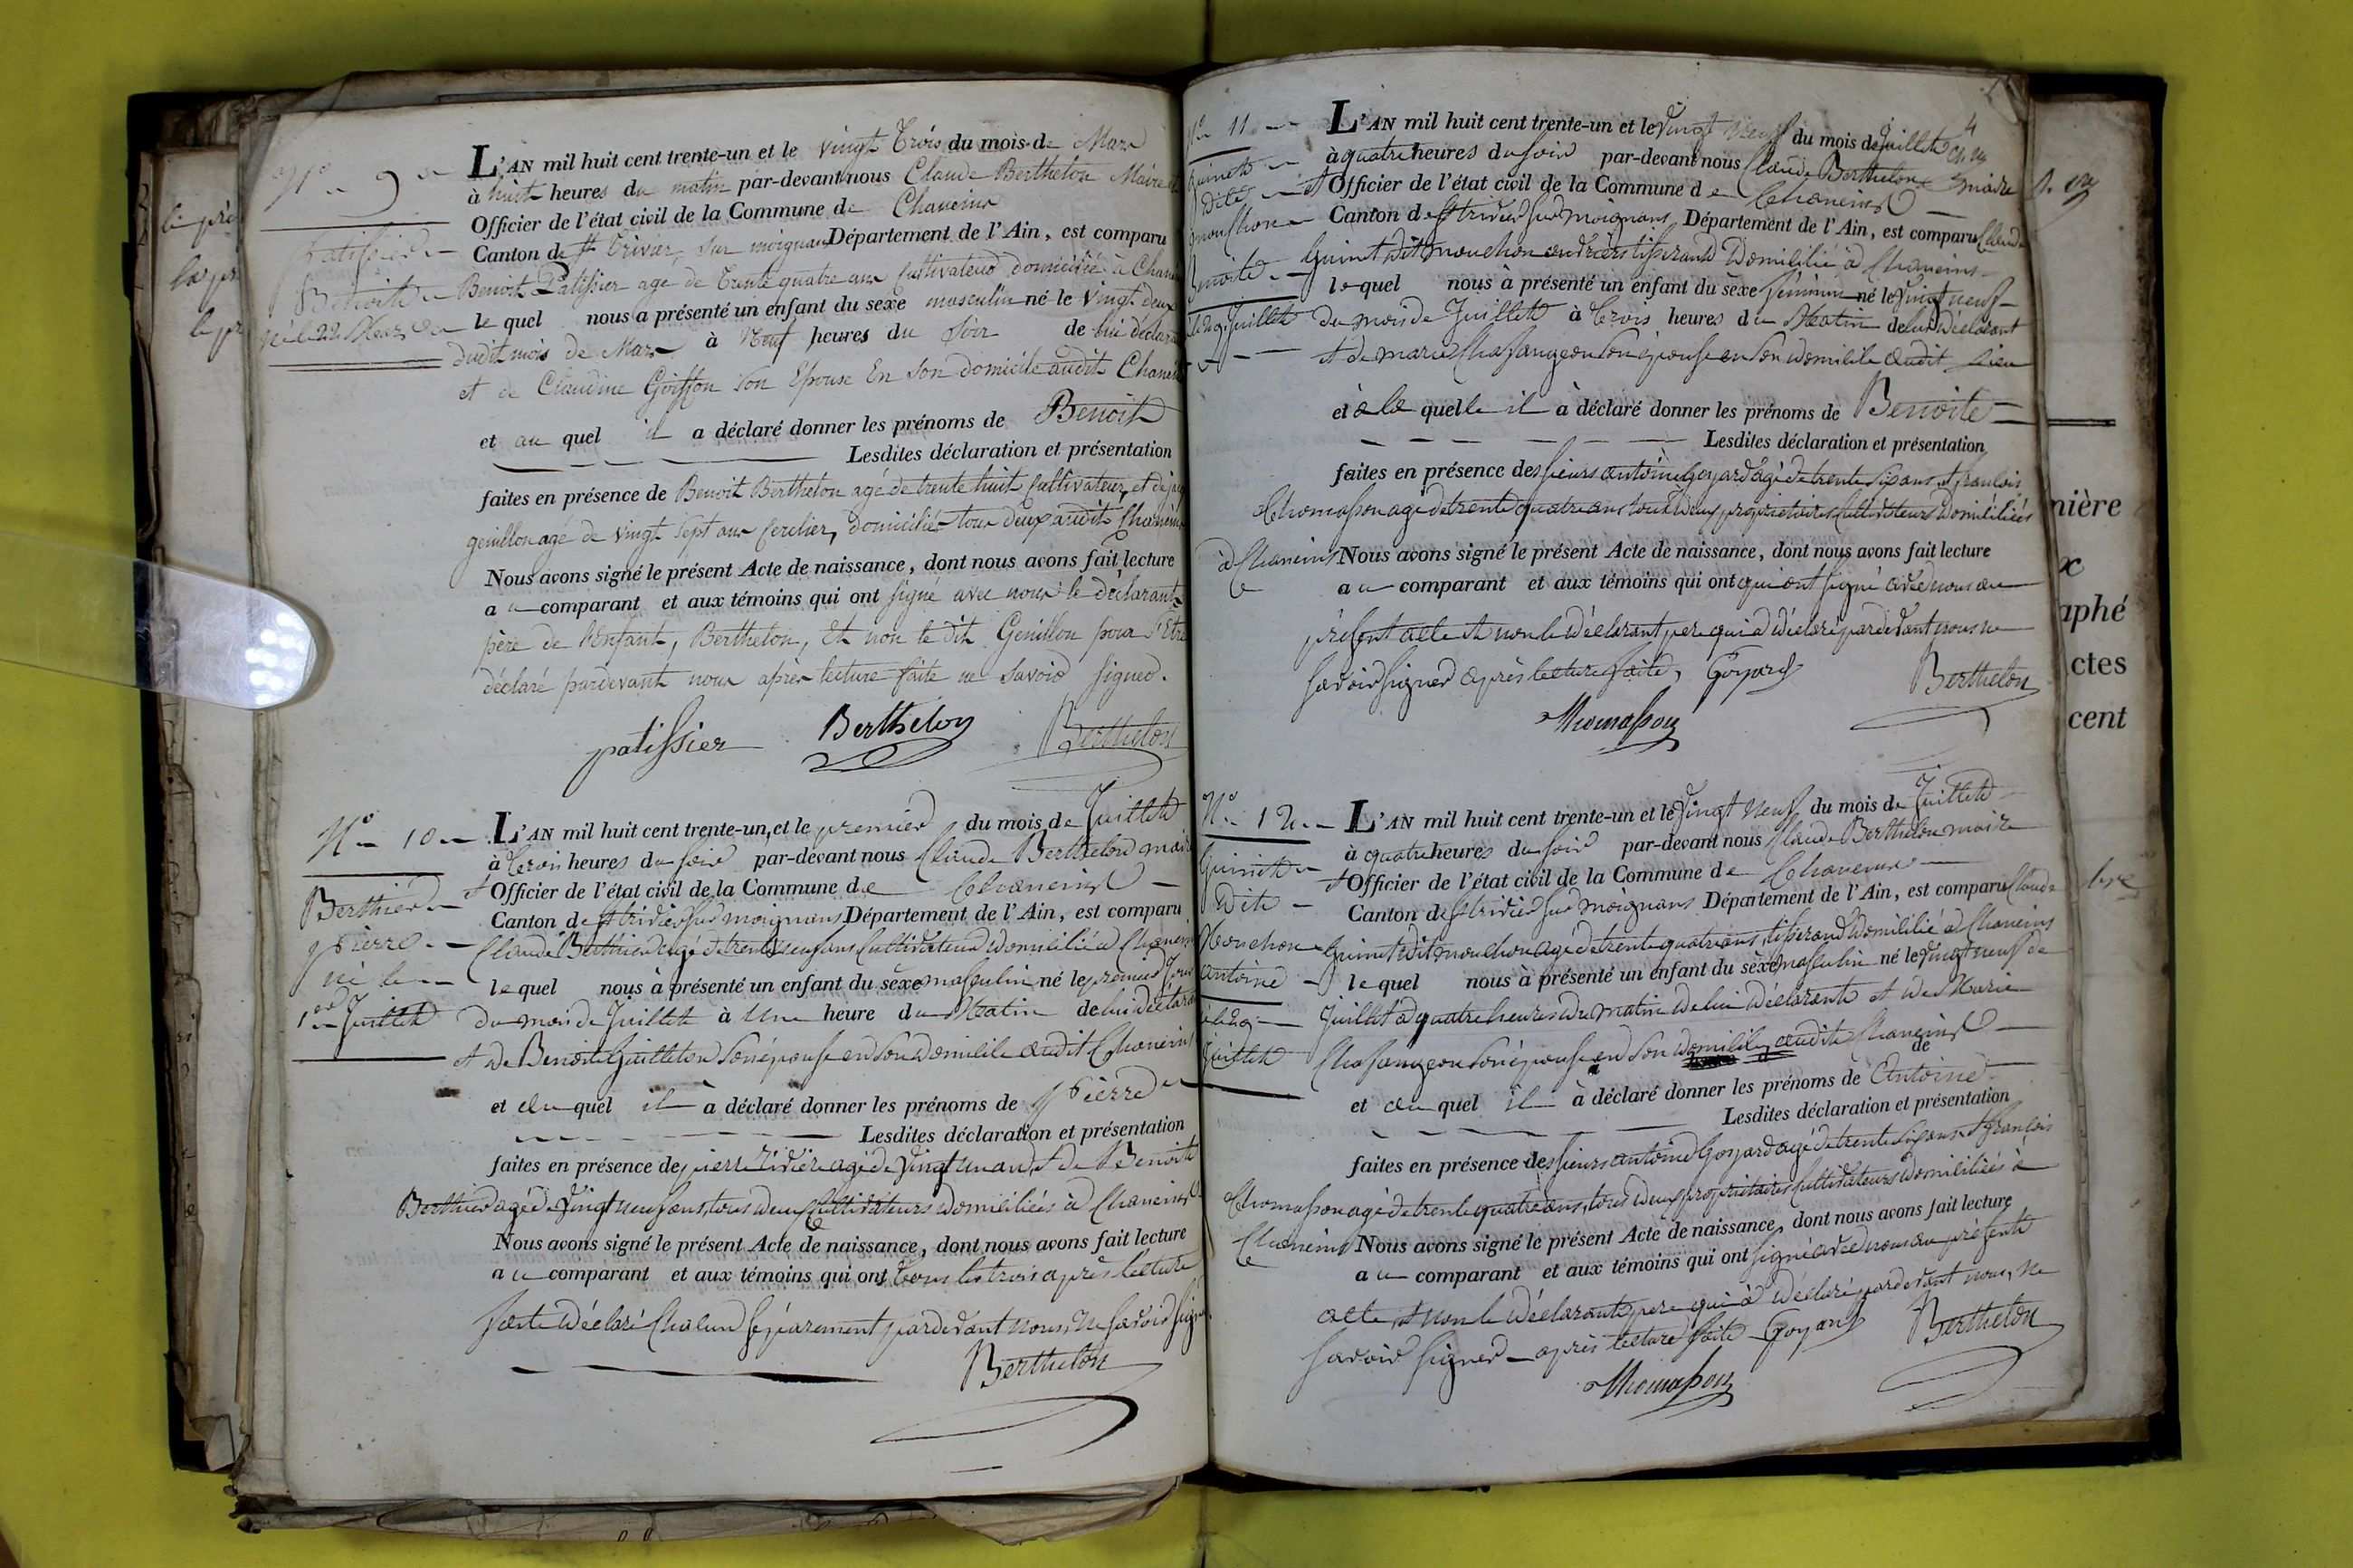 N.° 9
Patissier
Benoit
né le 22 Mars
L'AN mil huit cent trente-un et le vingt Trois du mois de Mars
à huit heures du matin par-devant nous Claude Berthelon Maire
Officier de l'état civil de la Commune de Chaneins
Canton de St Trivier sur moignans Département de l'Ain, est comparu
Benoit Patissier agé de Trente quatre ans Cultivateur domicilié à
le quel nous a présenté un enfant du sexe masculin né le Vingt deux
dudit mois de Mars à Neuf heures du Soir de lui
et de Claudine Goiffon Son Epouse En Son domicile audit
et au quel il a déclaré donner les prénoms de Benoit
Lesdites déclaration et présentation
faites en présence de Benoit Berthelon agé de trente huit Cultivateur, et de
genillon agé de vingt Sept ans Cerclier, domiciliés tous deux audit Chaneins
Nous avons signé le présent Acte de naissance, dont nous avons fait lecture
au comparant et aux témoins qui ont signé avec nous le déclarant
père de l'Enfant, Berthelon, Et non le dit Genillon pour
déclaré pardevant nous après lecture faite ne Savoir signer.
patissier Berthelon Berthelon
N.° 10
Berthier
Pierre
né le
1er Juillet
L'AN mil huit cent trente-un, et le premier du mois de Juillet
à trois heures du soir par-devant nous Claude Berthelon
et Officier de l'état civil de la Commune de Chaneins
Canton de St trivier sur moignans Département de l'Ain, est comparu
Claude Berthier agé de trente neuf ans Cultivateur domicilié à
le quel nous à présenté un enfant du sexe masculin né le premier Jour
du mois de Juillet à Une heure du Matin de lui
et de Benoite Guilleton Son épouse en Son domicile audit Chaneins
et au quel il à déclaré donner les prénoms de Pierre
Lesdites déclaration et présentation
faites en présence de pierre rivière agé de Vingt un an, et de Benoit
Berthier agé de Vingt neuf ans, tous deux Cultivateurs domiciliés à Chaneins
Nous avons signé le présent Acte de naissance, dont nous avons fait lecture
au comparant et aux témoins qui ont tous les trois après lecture
faite déclaré Chacun séparement pardevant nous, ne Savoir
Berthelon
N.° 11
Guinet
dite
mouchon
Benoite
Juillet
L'AN mil huit cent trente-un et le Vingt neuf du mois de Juillet
à quatre heures du soir par-devant nous Claude Berthelon maire
et Officier de l'état civil de la Commune de Chaneins
Canton de St trivier sur moignans Département de l'Ain, est comparu Claude
Guinet dit mouchon tisserand domicilié à Chaneins
le quel nous à présenté un enfant du sexe féminin né le Vingt neuf
du mois de Juillet à Trois heures du Matin de lui déclarant
et de marie Chassangeon Son épouse en Son domicile audit lieu
et à la quelle il à déclaré donner les prénoms de Benoite
Lesdites déclaration et présentation
faites en présence des sieurs antoine Goyard agé de trente Six ans, et françois
Thomasson agé de trente quatre ans tous deux propriétaires Cultivateurs domiciliés
à Chaneins Nous avons signé le présent Acte de naissance, dont nous avons fait lecture
au comparant et aux témoins qui ont qui ont signé avec nous au
présent acte et non le déclarant pere qui a déclaré pardevant nous ne
savoir signer après lecture faite, Goyard Berthelon
Thomasson
N.° 12
Guinet
Dit
Mouchon
antoine
né le 29
Juillet
L'AN mil huit cent trente-un et le Vingt neuf du mois de Juillet
à quatre heures du soir par-devant nous Claude Berthelon maire
et Officier de l'état civil de la Commune de Chaneins
Canton de St trivier sur moignans Département de l'Ain, est comparu Claude
Guinet dit mouchon agé de trente quatre ans, tisserand domicilié à Chaneins
le quel nous à présenté un enfant du sexe masculin né le Vingt neuf de
Juillet à quatre heures du matin de lui déclarant et de Marie
Chassangeon Son épouse en Son domicile, audit Chaneins
et au quel il à déclaré donner les prénoms de de Antoine
Lesdites déclaration et présentation
faites en présence des sieurs antoine Goyard agé de trente Six ans et françois
Thomasson agé de trente quatre ans, tous deux propriétaires Cultivateurs domiciliés à
Chaneins Nous avons signé le présent Acte de naissance, dont nous avons fait lecture
au comparant et aux témoins qui ont signé avec nous au présent
acte, et non le déclarant pere qui à déclaré pardevant nous, ne
savoir signer après lecture faite Goyard Berthelon
Thomasson
nière
aphé
ctes
cent